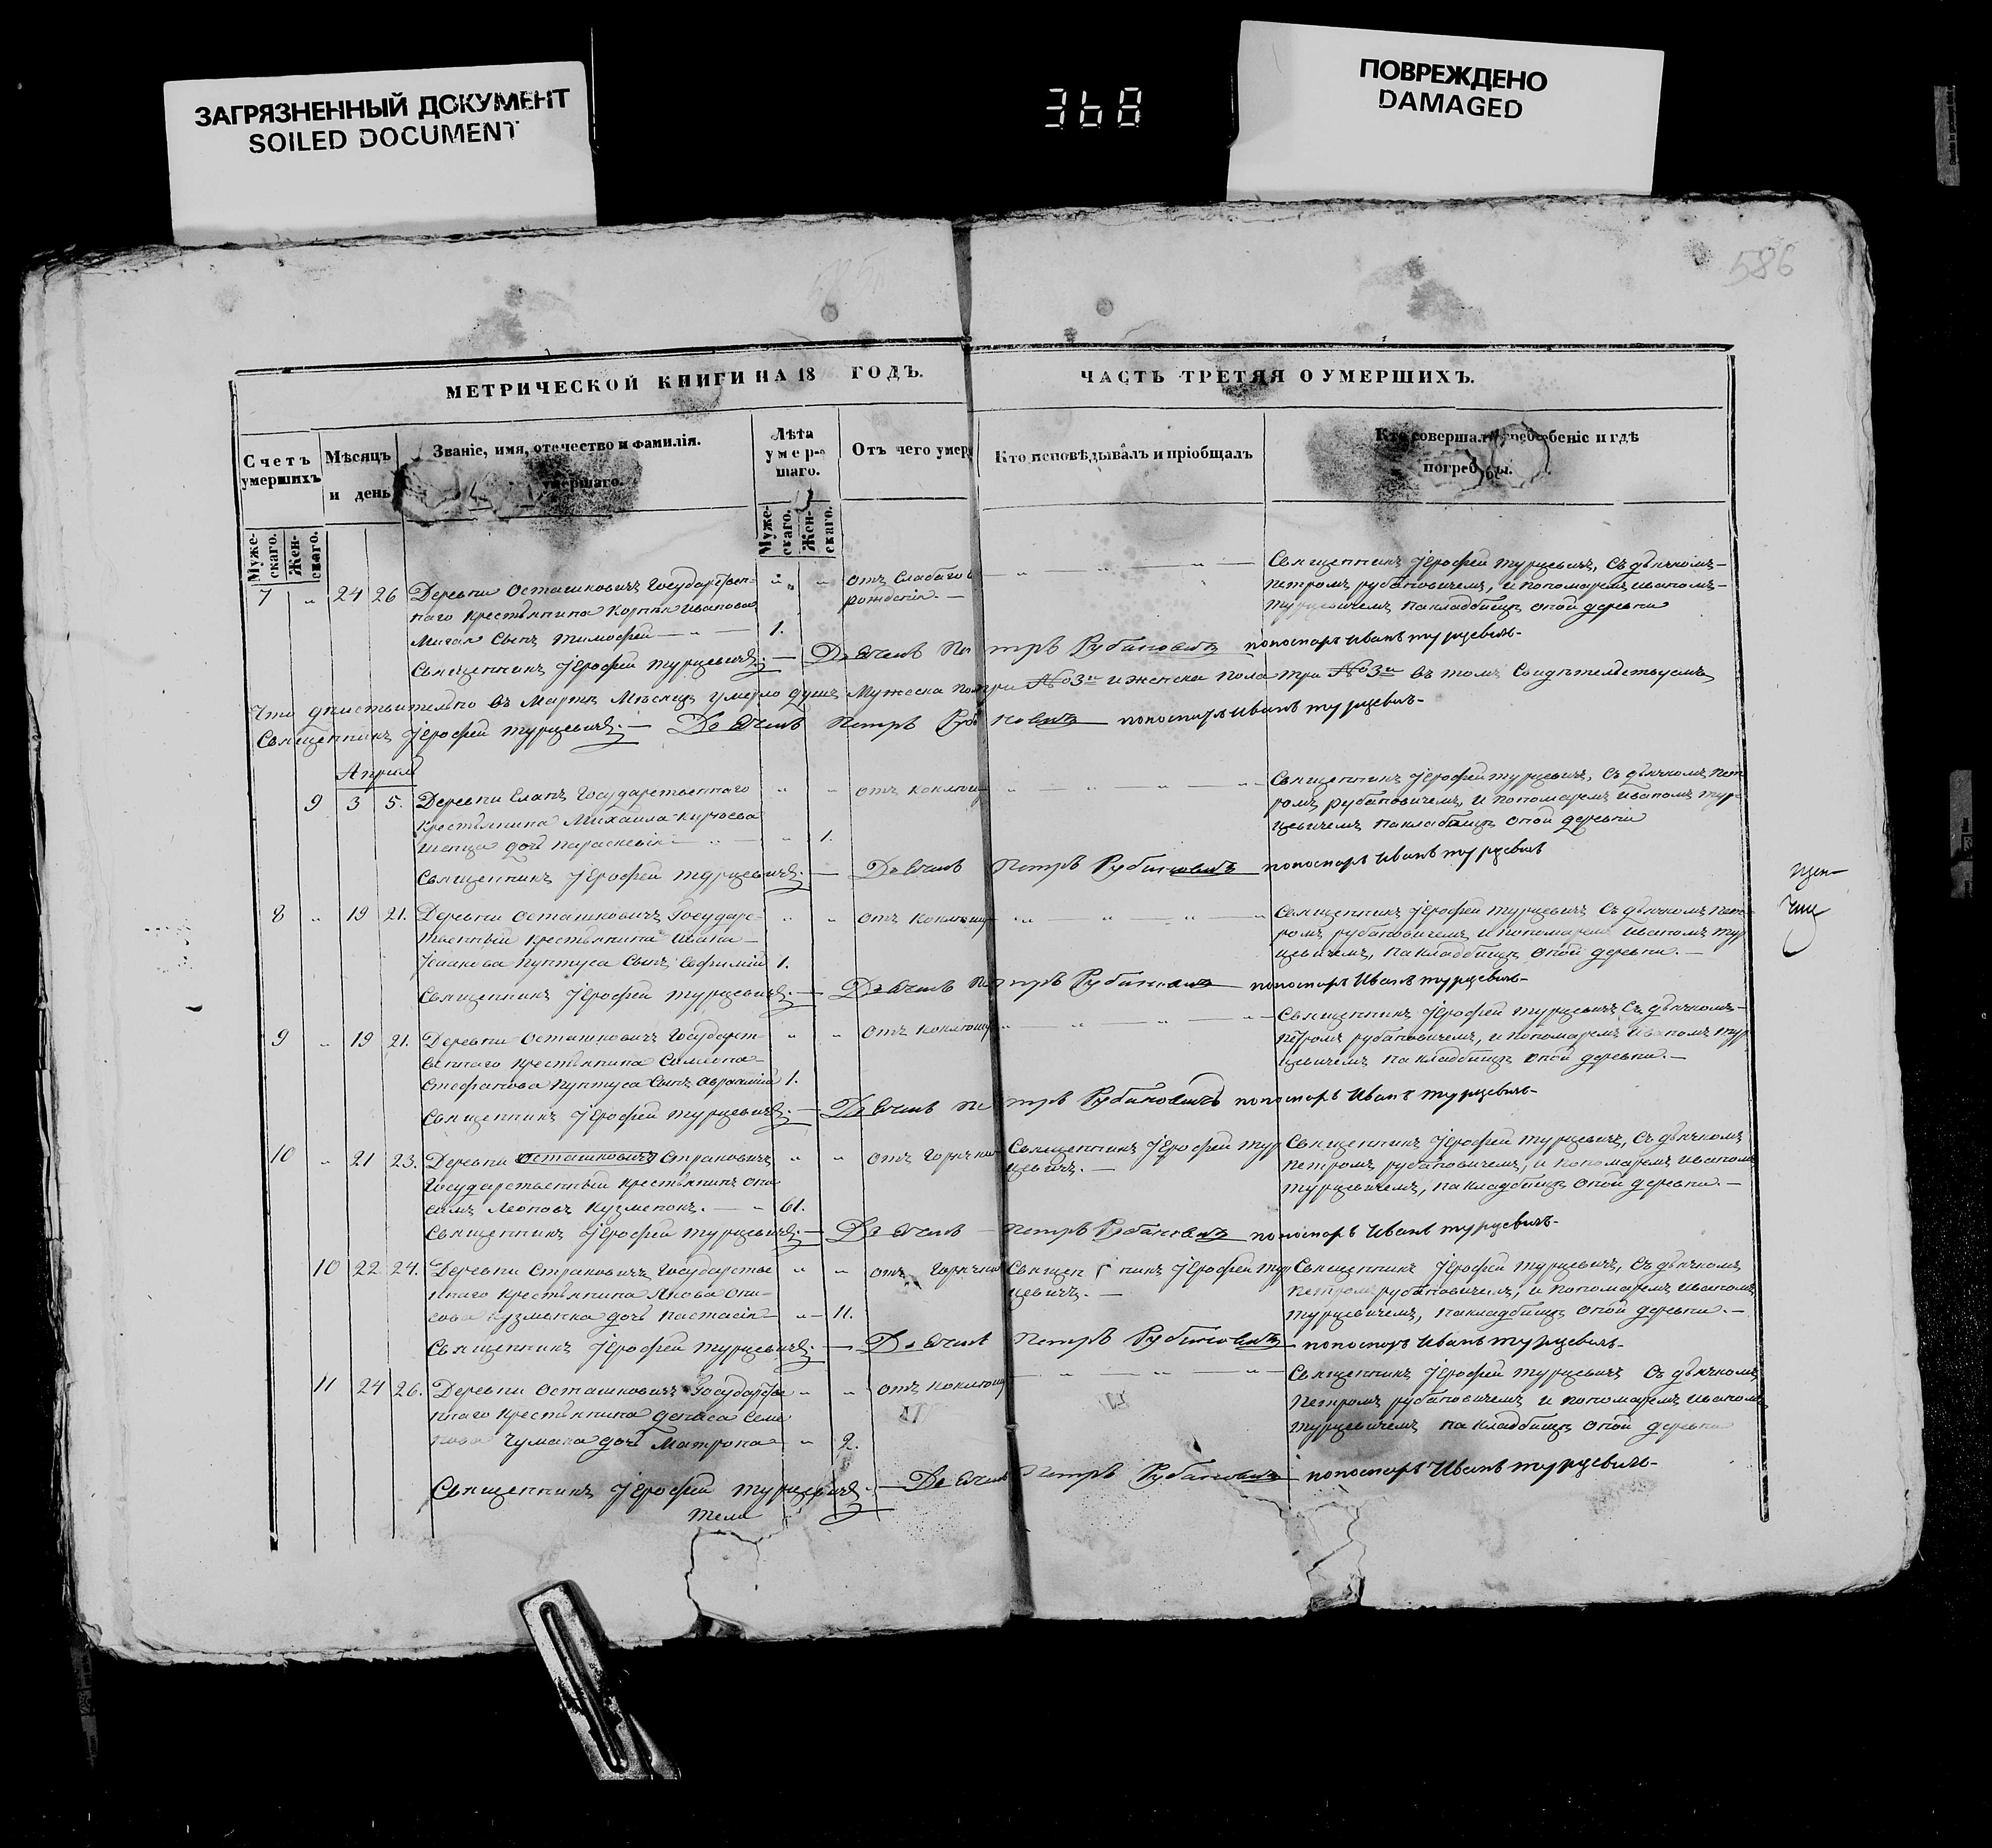 ЗАГРЯЗНЕННЫЙ ДОКУМЕНТ
SOILED DOCUMENT
368
ПОВРЕЖДЕНО
DAMAGED
586
МЕТРИЧЕСКОЙ КНИГИ НА 18 ГОДЪ.
ЧАСТЬ ТРЕТЯЯ О УМЕРШИХЪ.
Счетъ умершихъ
Мѣсяцъ и день
Званіе, имя, отечество и фамилія. умершаго.
Лѣта умер-шаго.
Отъ чего умер
Кто исповѣдывалъ и пріобщалъ
Кто совершалъ погребеніе и гдѣ
погребены.
Муже-скаго.
Жен-скаго.
Муже-скаго.
Жен-скаго.
7 " 24 26 Деревни Осташковичъ Государствен-
наго крестьянина Иванова
сынъ Тимофей 1.
отъ слабаго
рожденія.
Священникъ Іерофей Турцевичъ, съ дьячкомъ
Петромъ Рубановичемъ, и пономаремъ Иваномъ
Турцевичемъ на кладбищѣ оной деревни
Священникъ Іерофей Турцевичъ. Дьячекъ Петръ Рубановичъ пономарь Иванъ Турцевичъ
Что дѣйствительно въ Мартѣ Мѣсяцѣ умерло душъ Мужеска пола три №3 и женска пола три №3 въ томъ свидѣтельствуемъ
Священникъ Іерофей Турцевичъ. Дьячекъ Петръ Рубановичъ пономарь Иванъ Турцевичъ
Апрѣль
9 3 5. Деревни Еланъ Государственнаго
крестьянина Михаила
дочь Параскевія 1.
отъ коклюш
Священникъ Іерофей Турцевичъ, съ дьячкомъ Пет
ромъ Рубановичемъ, и пономаремъ Иваномъ Тур
цевичемъ на кладбищѣ оной деревни
Священникъ Іерофей Турцевичъ. Дьячекъ Петръ Рубановичъ пономарь Иванъ Турцевичъ
8 " 19 21. Деревни Осташковичъ Государс-
твенный крестьянина Ивана
Исаакова Пунтуса сынъ Евфимій 1.
отъ коклюш
Священникъ Іерофей Турцевичъ съ дьячкомъ Пет
ромъ Рубановичемъ и пономарем Иваномъ Тур
цевичемъ, на кладбищѣ оной деревни.
Священникъ Іерофей Турцевичъ. Дьячекъ Петръ Рубановичъ пономарь Иванъ Турцевичъ
9 " 19 21. Деревни Осташковичъ Государст-
веннаго крестьянина Симеона
Стефанова Пунтуса сынъ Авраамій 1.
отъ коклюш
Священникъ Іерофей Турцевичъ съ дьячкомъ
Петромъ Рубановичемъ, и пономаремъ Иваномъ Тур
цевичемъ на кладбищѣ оной деревни.
Священникъ Іерофей Турцевичъ. Дьячекъ Петръ Рубановичъ пономарь Иванъ Турцевичъ
10 " 21 23. Деревни Осташковичъ Страковичъ
Государственный крестьянинъ Они
симъ Леоновъ Кузменокъ. 61.
отъ горячки
Священникъ Іерофей Тур
цевичъ.
Священникъ Іерофей Турцевичъ, съ дьячкомъ
Петромъ Рубановичемъ, и пономаремъ Иваном
Турцевичемъ, на кладбищѣ оной деревни.
Священникъ Іерофей Турцевичъ. Дьячекъ Петръ Рубановичъ пономарь Иванъ Турцевичъ
10 22 24. Деревни Страковичъ Государстве
ннаго крестьянина Якова Они-
сова Кузменка дочь Настасія 11.
отъ горячки
Священникъ Іерофей Тур
цевичъ.
Священникъ Іерофей Турцевичъ, съ дьячкомъ
Петромъ Рубановичемъ, и пономаремъ Иваном
Турцевичемъ, на кладбищѣ оной деревни.
Священникъ Іерофей Турцевичъ. Дьячекъ Петръ Рубановичъ пономарь Иванъ Турцевичъ
11 24 26. Деревни Осташковичъ Государстве
ннаго крестьянина Дениса Семе
нова Чумака дочь Матрона 2.
отъ коклюш
Священникъ Іерофей Турцевичъ съ дьячкомъ
Петромъ Рубановичемъ и пономаремъ Иваном
Турцевичемъ на кладбищѣ оной деревни
Священникъ Іерофей Турцевичъ. Дьячекъ Петръ Рубановичъ пономарь Иванъ Турцевичъ